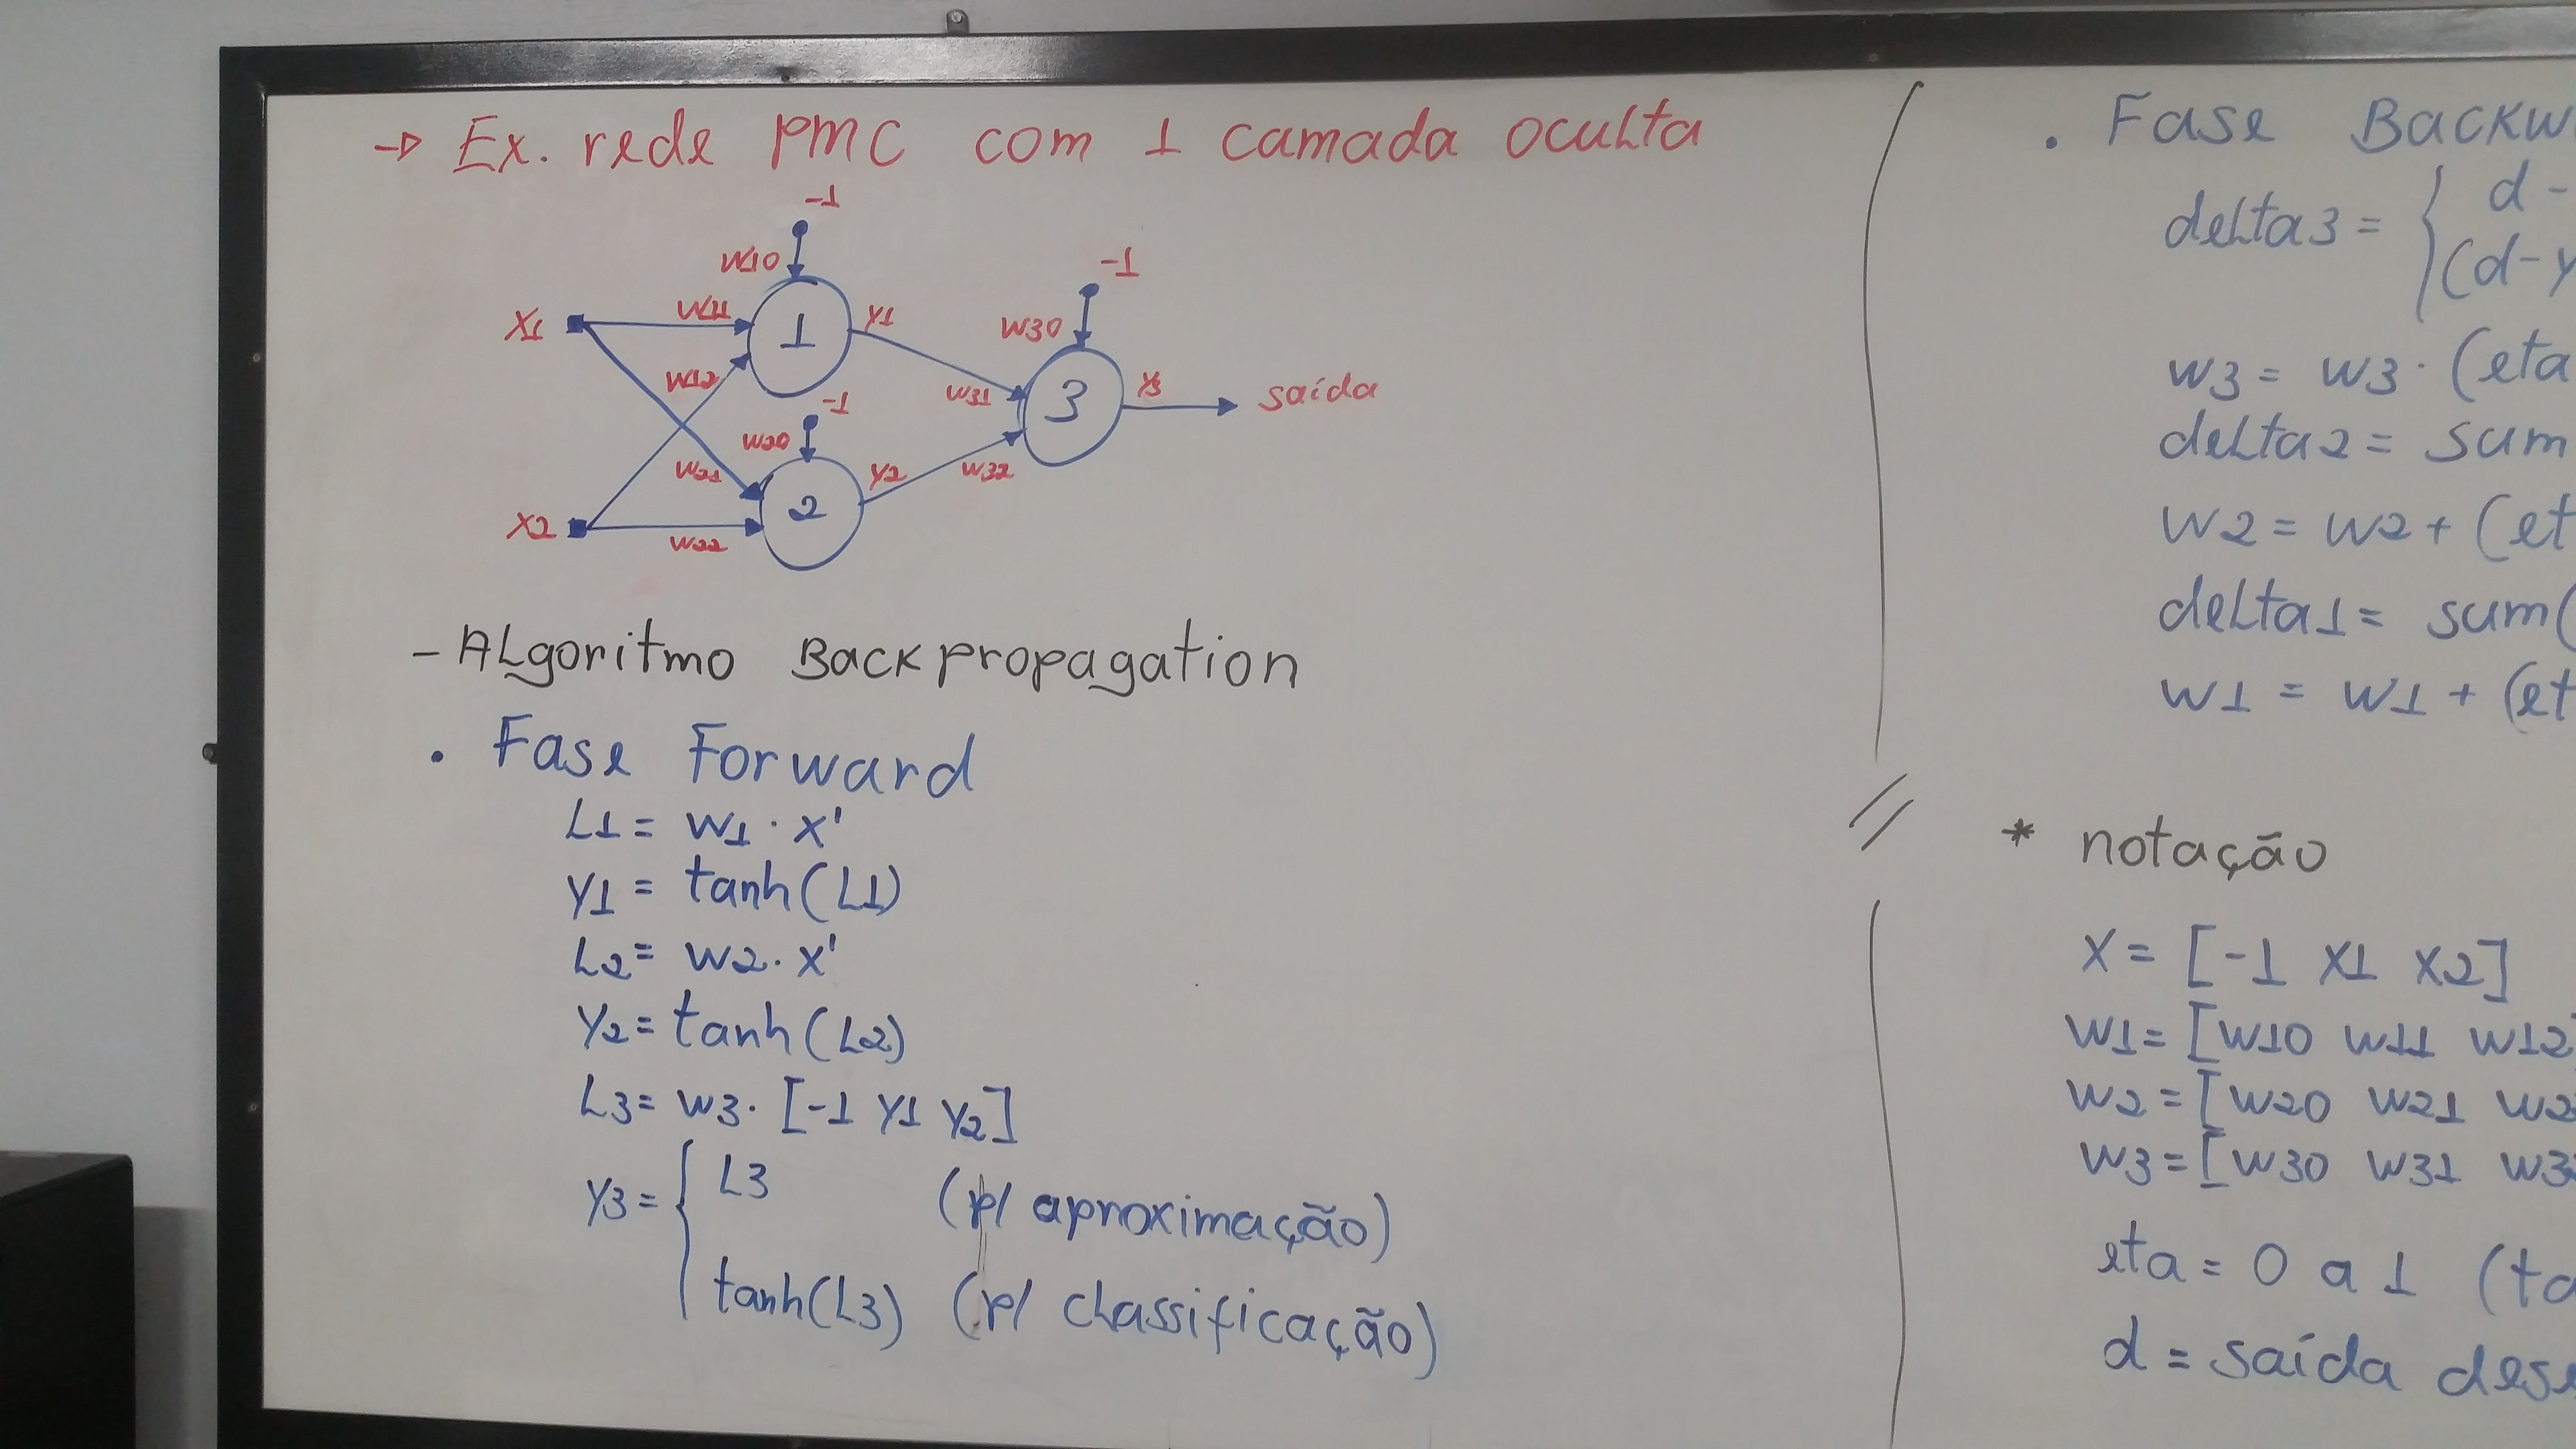 → Ex. rede PMC com 1 camada oculta
-1
W10
-1
X1 W11 1 Y1 W30
W12 -1 W31 3 Y3 saída
W20
W21 2 Y2 W32
X2 W22
- Algoritmo Backpropagation
. Fase Forward
L1 = W1 . X'
Y1 = tanh(L1)
L2 = W2 . X'
Y2 = tanh(L2)
L3 = W3 . [-1 Y1 Y2]
Y3 = { L3 (p/ aproximação)
tanh(L3) (p/ classificação)
. Fase Backw
delta3 = { d -
(d-y
W3 = W3 . (eta
delta2 = sum
W2 = W2 + (et
delta1 = sum(
W1 = W1 + (et
* notação
X = [-1 X1 X2]
W1 = [W10 W11 W12]
W2 = [W20 W21 W2
W3 = [W30 W31 W3
eta = 0 a 1 (ta
d = saída dese